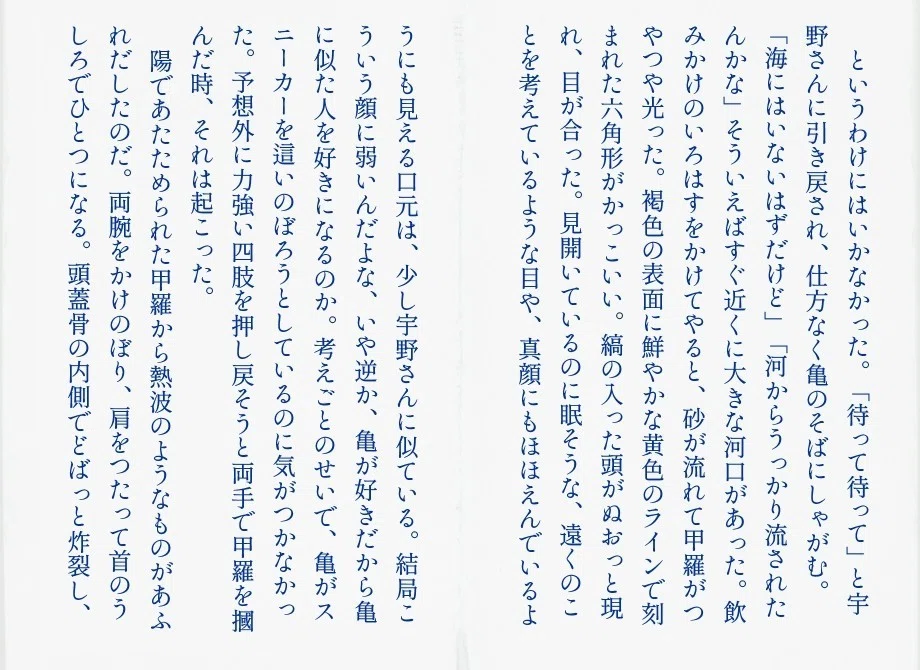 というわけにはいかなかった。「待って待って」と宇
野さんに引き戻され、仕方なく亀のそばにしゃがむ。
「海にはいないはずだけど」「河からうっかり流された
んかな」そういえばすぐ近くに大きな河口があった。飲
みかけのいろはすをかけてやると、砂が流れて甲羅がつ
やつや光った。褐色の表面に鮮やかな黄色のラインで刻
まれた六角形がかっこいい。縞の入った頭がぬおっと現
れ、目が合った。見開いているのに眠そうな、遠くのこ
とを考えているような目や、真顔にもほほえんでいるよ
うにも見える口元は、少し宇野さんに似ている。結局こ
ういう顔に弱いんだよな、いや逆か、亀が好きだから亀
に似た人を好きになるのか。考えごとのせいで、亀がス
ニーカーを這いのぼろうとしているのに気がつかなかっ
た。予想外に力強い四肢を押し戻そうと両手で甲羅を摑
んだ時、それは起こった。
陽であたためられた甲羅から熱波のようなものがあふ
れだしたのだ。両腕をかけのぼり、肩をつたって首のう
しろでひとつになる。頭蓋骨の内側でどばっと炸裂し、